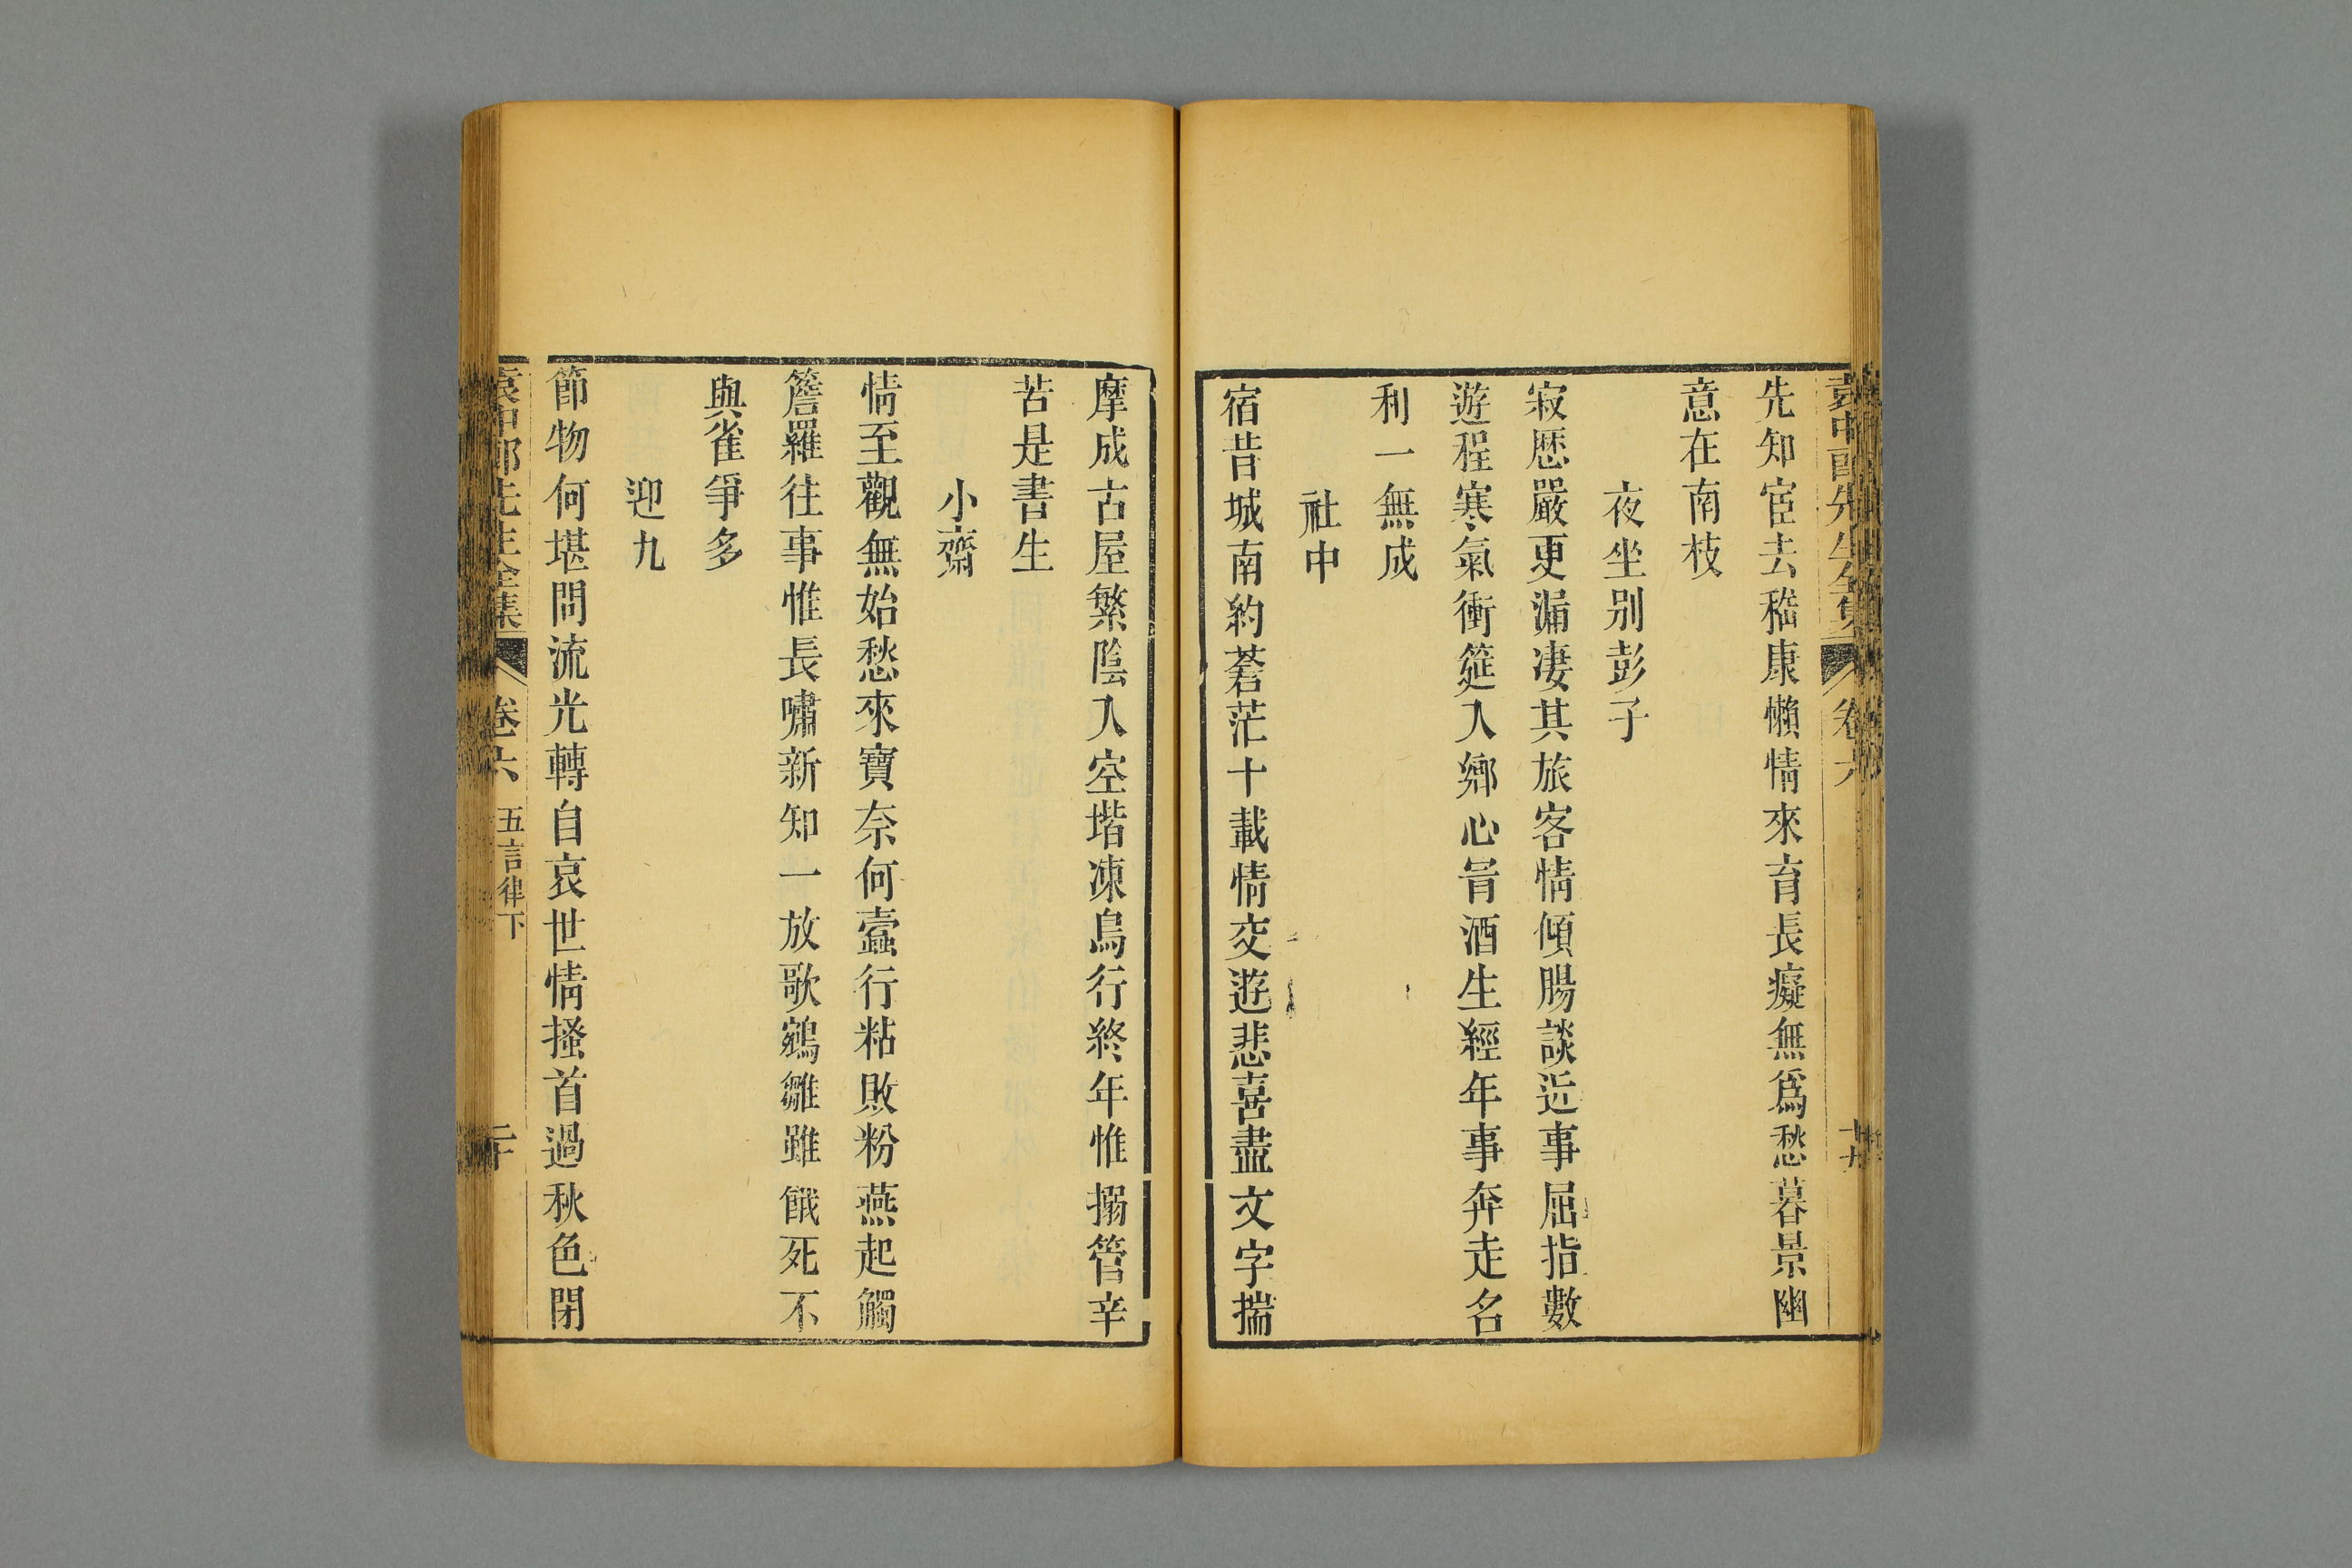 袁中郎先生全集 卷六 十九
先知宦去嵇康懶情來育長癡無爲愁暮景幽
意在南枝
夜坐别彭子
寂歷嚴更漏凄其旅客情傾腸談近事屈指數
遊程寒氣衝筵入鄉心冐酒生經年事奔走名
利一無成
社中
宿昔城南約蒼茫十載情交遊悲喜盡文字揣
摩成古屋繁陰入空堦凍鳥行終年惟搦管辛
苦是書生
小齋
情至觀無始愁來寶奈何蠧行粘敗粉燕起觸
簷羅往事惟長嘯新知一放歌鵷雛雖餓死不
與雀爭多
迎九
節物何堪問流光轉自哀世情搔首過秋色閉
袁中郎先生全集 卷六 五言律下 二十